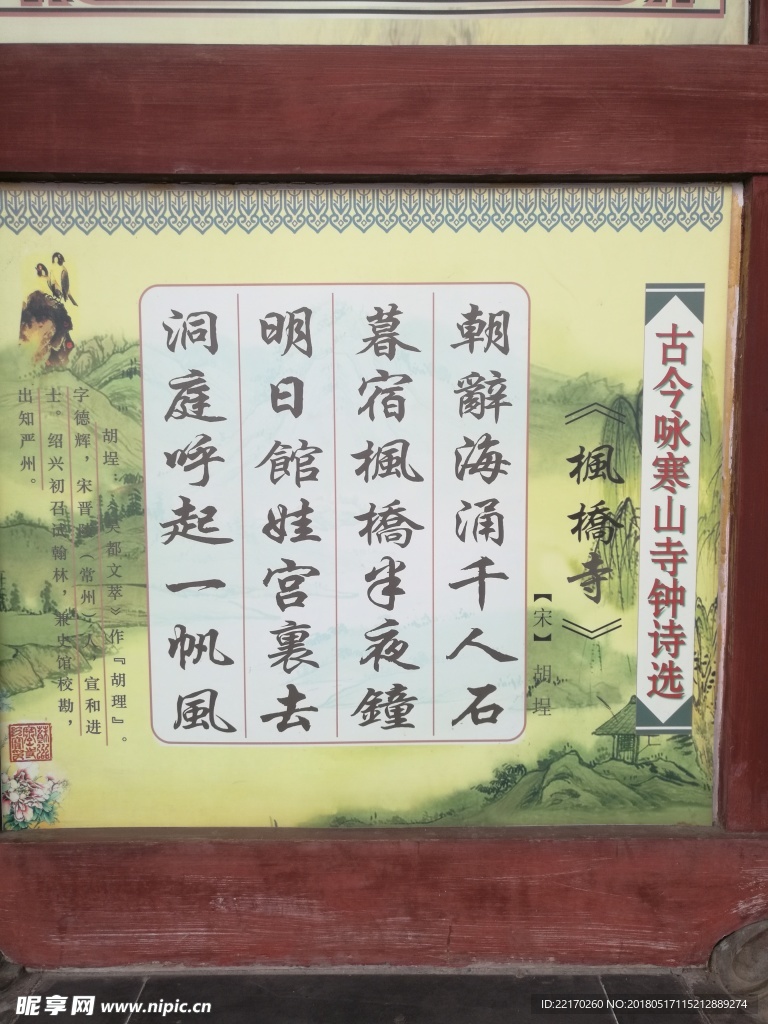 古今咏寒山寺钟诗选
《楓橋寺》
【宋】胡埕
朝辭海涌千人石
暮宿楓橋半夜鐘
明日館娃宫裏去
洞庭呼起一帆風
胡埕，《吴都文萃》作『胡理』。
字德辉，宋晋陵（常州）人，宣和进
士。绍兴初召试翰林，兼史馆校勘，
出知严州。
昵享网 www.nipic.cn
ID:22170260 NO:20180517115212889274